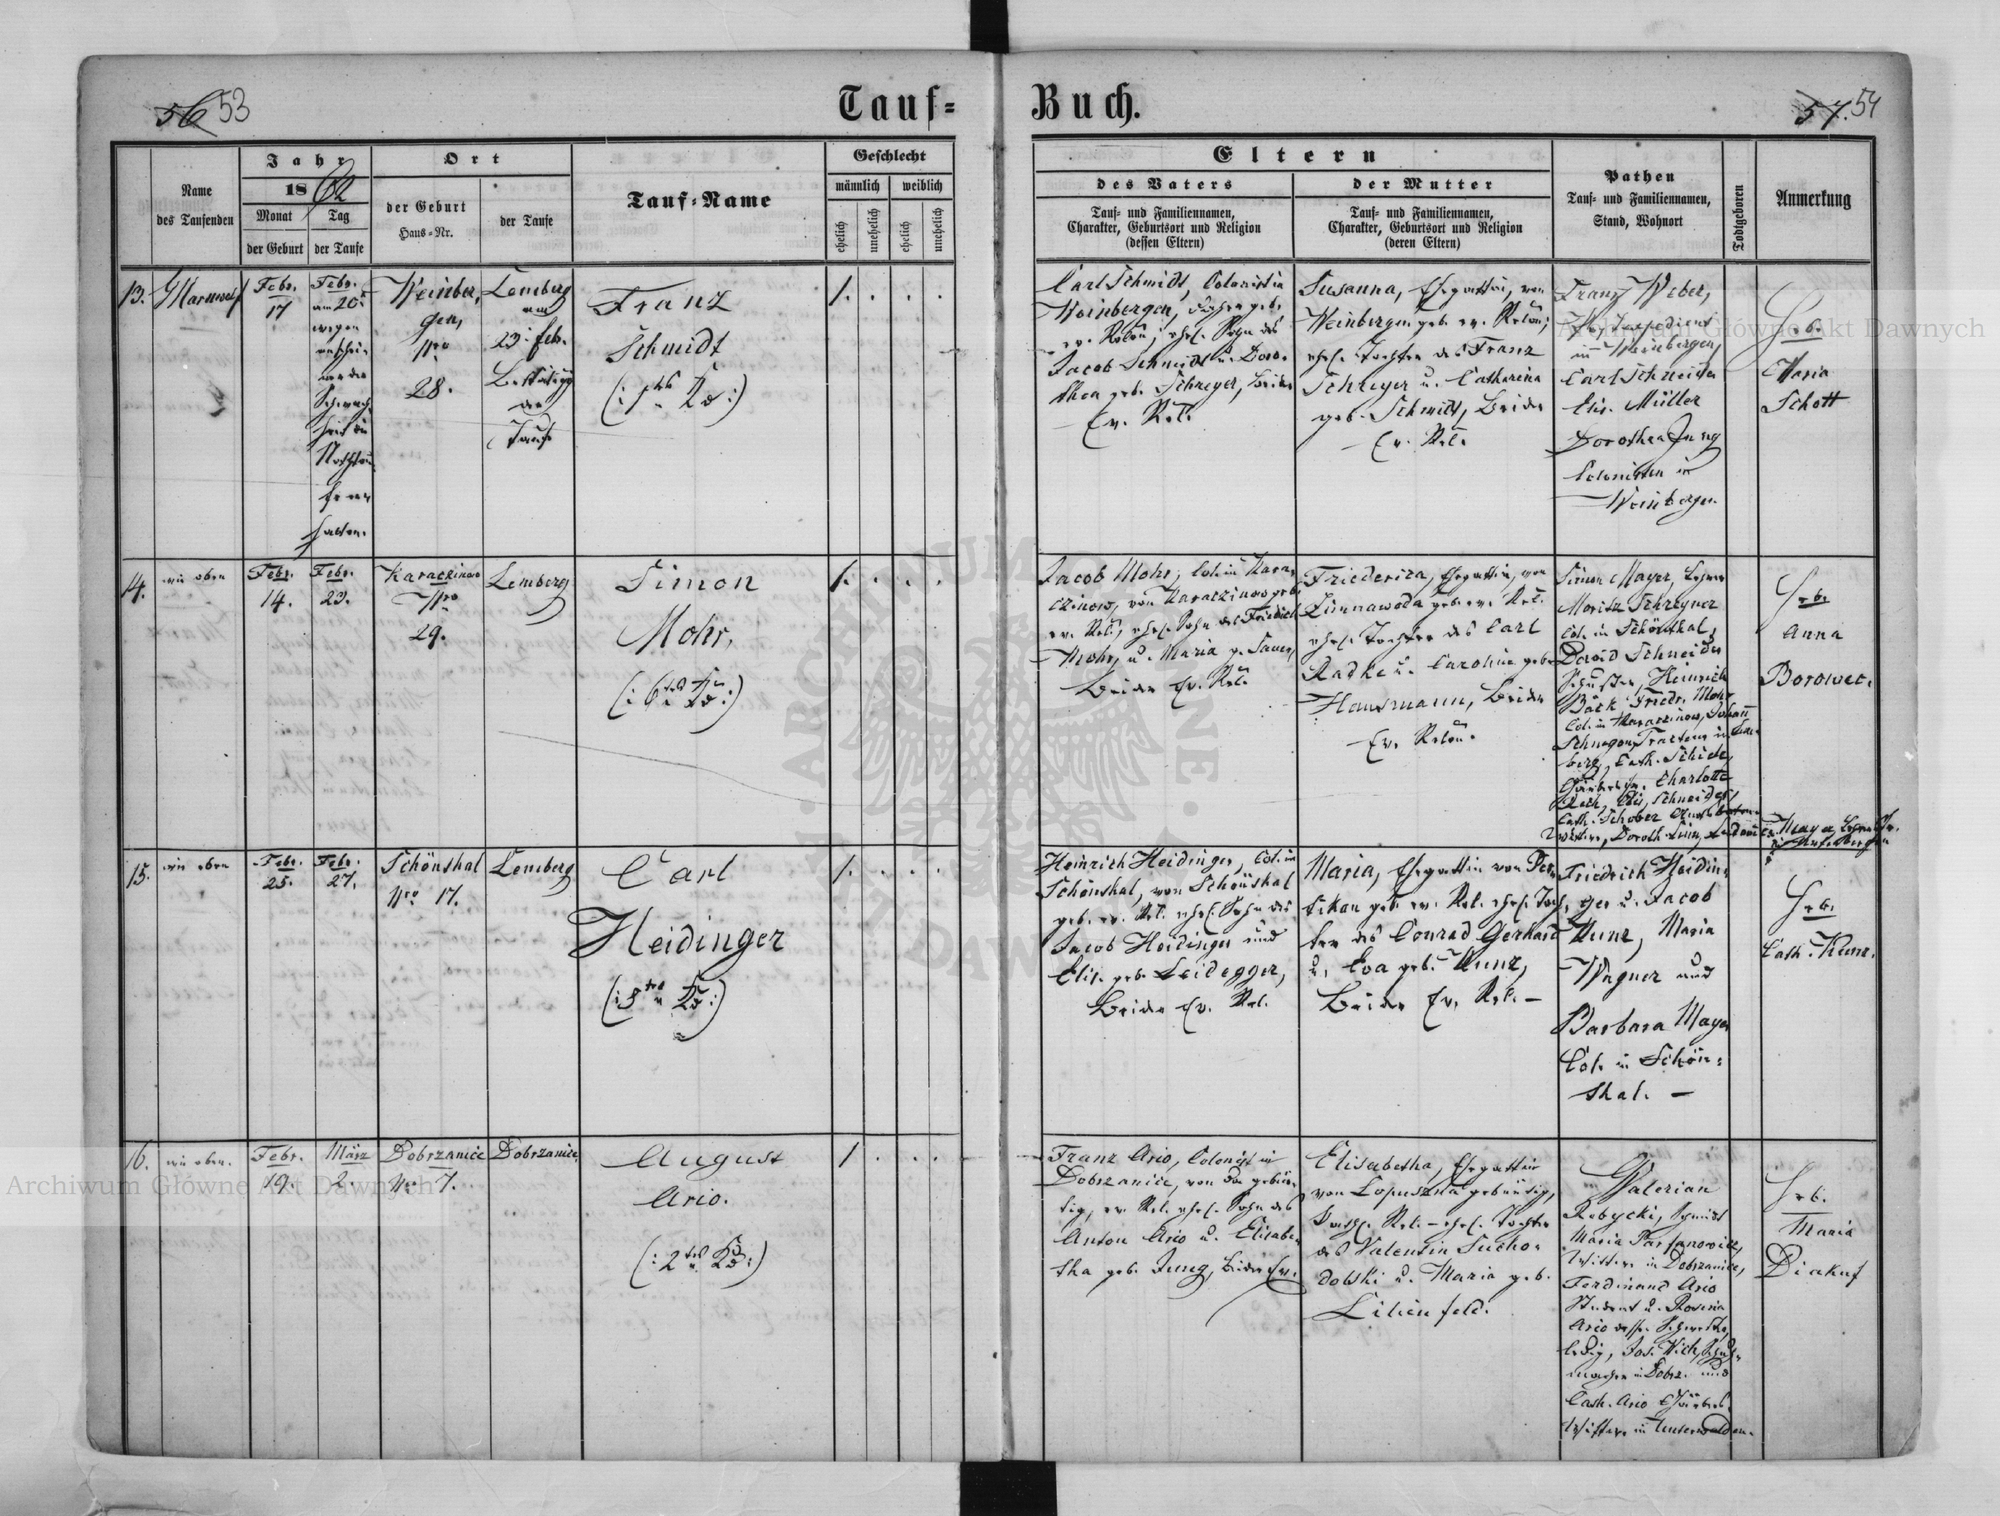 56 53
Tauf-
Buch.
57. 54
Name
des Taufenden
Jahr
1862
Monat
der Geburt
Tag
der Taufe
Ort
der Geburt
Haus-Nr.
der Taufe
Tauf-Name
Geschlecht
männlich
weiblich
ehelich
unehelich
ehelich
unehelich
Eltern
des Vaters
Tauf- und Familiennamen,
Charakter, Geburtsort und Religion
(dessen Eltern)
der Mutter
Tauf- und Familiennamen,
Charakter, Geburtsort und Religion
(deren Eltern)
Pathen
Tauf- und Familiennamen,
Stand, Wohnort
Todtgeboren
Anmerkung
13.
Febr.
17
Febr.
am 20.
wegen
Weinber,
gen,
Nro
28.
Lemberg
am
23. feb.
der
Taufe
Franz
Schmidt
1.
Carl Schmidt, Colonist in
Weinbergen,
ev. Relon; ehel. Sohn des
Jacob Schmidt u. Doro-
thea geb. Schreyer, beide
Ev. Rel.
Susanna, Ehegattin, von
Weinbergen geb. ev. Relon;
ehel. Tochter des Franz
Schreyer u. Catharina
geb. Schmidt, beide
Ev. Rel.
Franz Weber,
in Weinbergen,
Carl Schneider
Elis. Müller
Dorothea Jung
Colonisten in
Weinbergen
Heb.
Maria
Schott
14.
wie oben
Febr.
14.
Febr.
23.
Karaczinow
Nro
29.
Lemberg
Simon
Mohr,
1.
Jacob Mohr, Col. in Kara-
czinow, von Karaczinow geb.
ev. Rel., ehel. Sohn des Friedrich
Mohr, u. Maria g. Sauer,
beide Ev. Rel.
Friedericka, Ehegattin, von
Zinnawoda geb. ev. Rel.
ehel. Tochter des Carl
Radke u. Carolina geb.
Hausmann, beide
Ev. Relon.
Simon Mayer, Lehrer
Moritz Schreyner
Col. in Schönthal,
David Schneider
Schuster, Heinrich
Bäck, Friedr. Mohr
Col. in Karaczinow, Johann
berg, Cath.
Charlotte
Elis. Schneider,
Cath. Schober
Heb.
Anna
Borowec.
15.
wie oben
Febr.
25.
Febr.
27.
Schönthal
Nro 17.
Lemberg
Carl
Heidinger
1.
Heinrich Heidinger, Col. in
Schönthal, von Schönthal
geb. ev. Rel. ehel. Sohn des
Jacob Heidinger und
Elis. geb. Leidegger,
beide Ev. Rel.
Maria, Ehegattin von
geb. ev. Rel. ehel. Toch-
ter des Conrad Gerhard
u. Eva geb. Kunz,
beide Ev. Rel.
Friedrich Heidin-
ger u. Jacob
Kunz, Maria
Wagner und
Barbara Mayer
Col. in Schön-
thal.
Heb.
Cath. Kunz.
16.
wie oben.
Febr.
19.
März
2.
Dobrzanice
Nro 7.
Dobrzanice
August
Ario.
1
Franz Ario, Colonist in
Dobrzanice, von da gebür-
tig, ev. Rel. ehel. Sohn des
Anton Ario u. Elisabe-
tha geb. Jung, beide Ev.
Elisabetha, Ehegattin
von Lopuszna gebürtig,
kathl. Rel. – ehel. Tochter
des Valentin Sucho-
dolski u. Maria geb.
Lilienfeld.
Valerian
Rebycki, Schmidt
Maria Parfanowicz,
Wittwe in Dobrzanice,
Ferdinand Ario
Student u. Rosina
Ario dess. Schwester,
ledig, Jos. Wick, Schuh-
macher in Dobrz. und
Cath. Ario
Wittwe in Unterwalden.
Heb.
Maria
Diakuf
Archiwum Główne Akt Dawnych
Archiwum Główne Akt Dawnych
ARCHIWUM GŁÓWNE AKT DAWNYCH